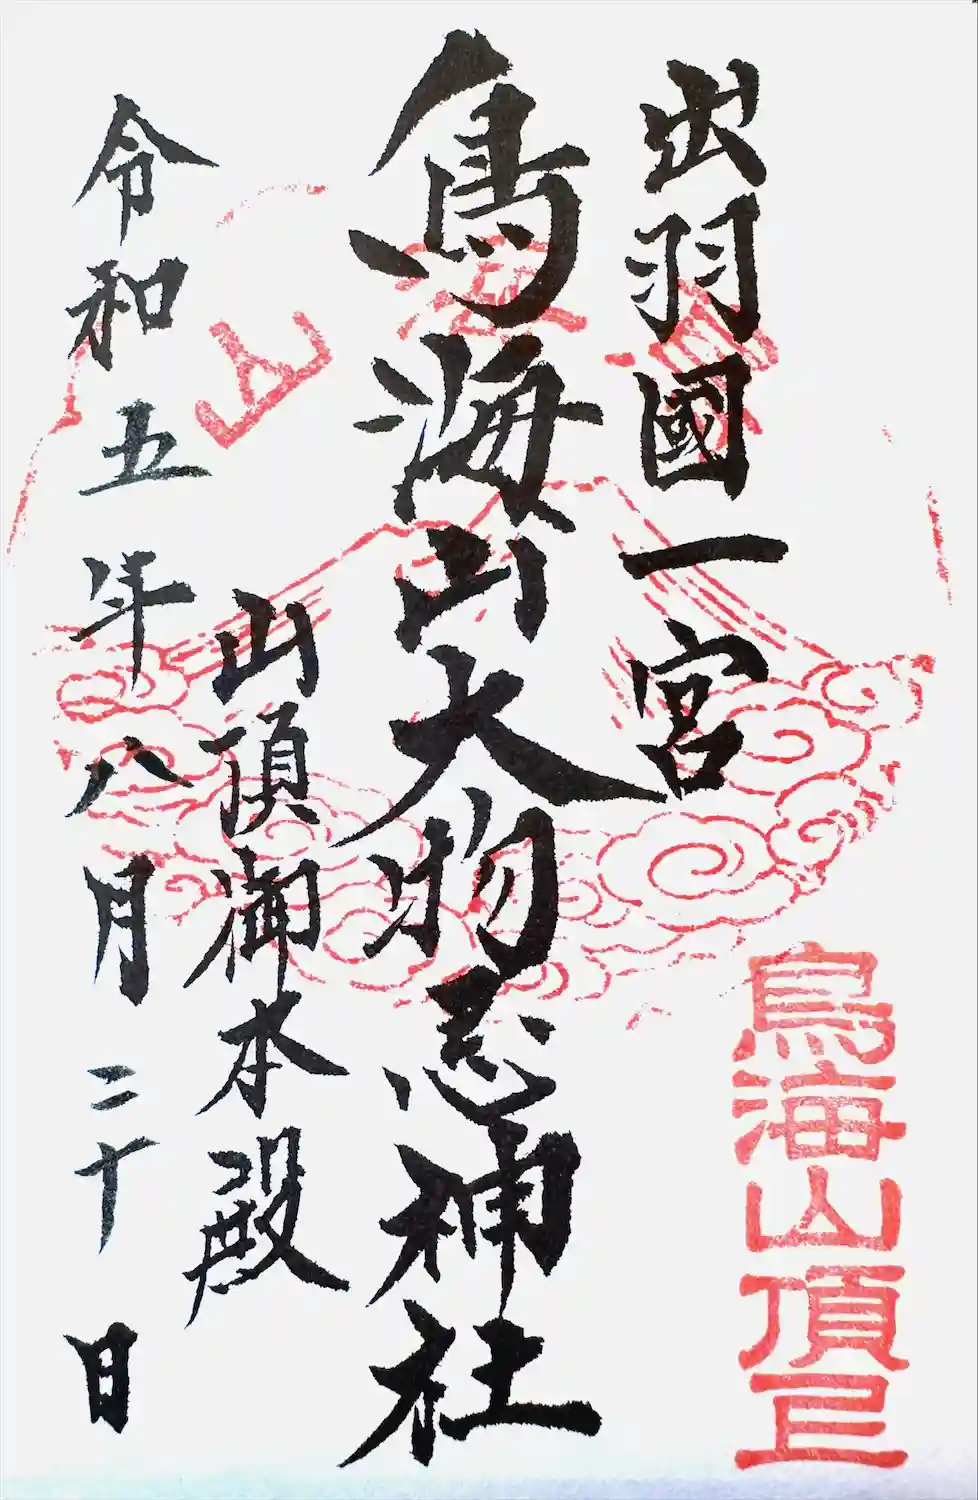 出羽國一宮
鳥海山頂上
鳥海山大物忌神社
山頂御本殿
令和五年八月二十日